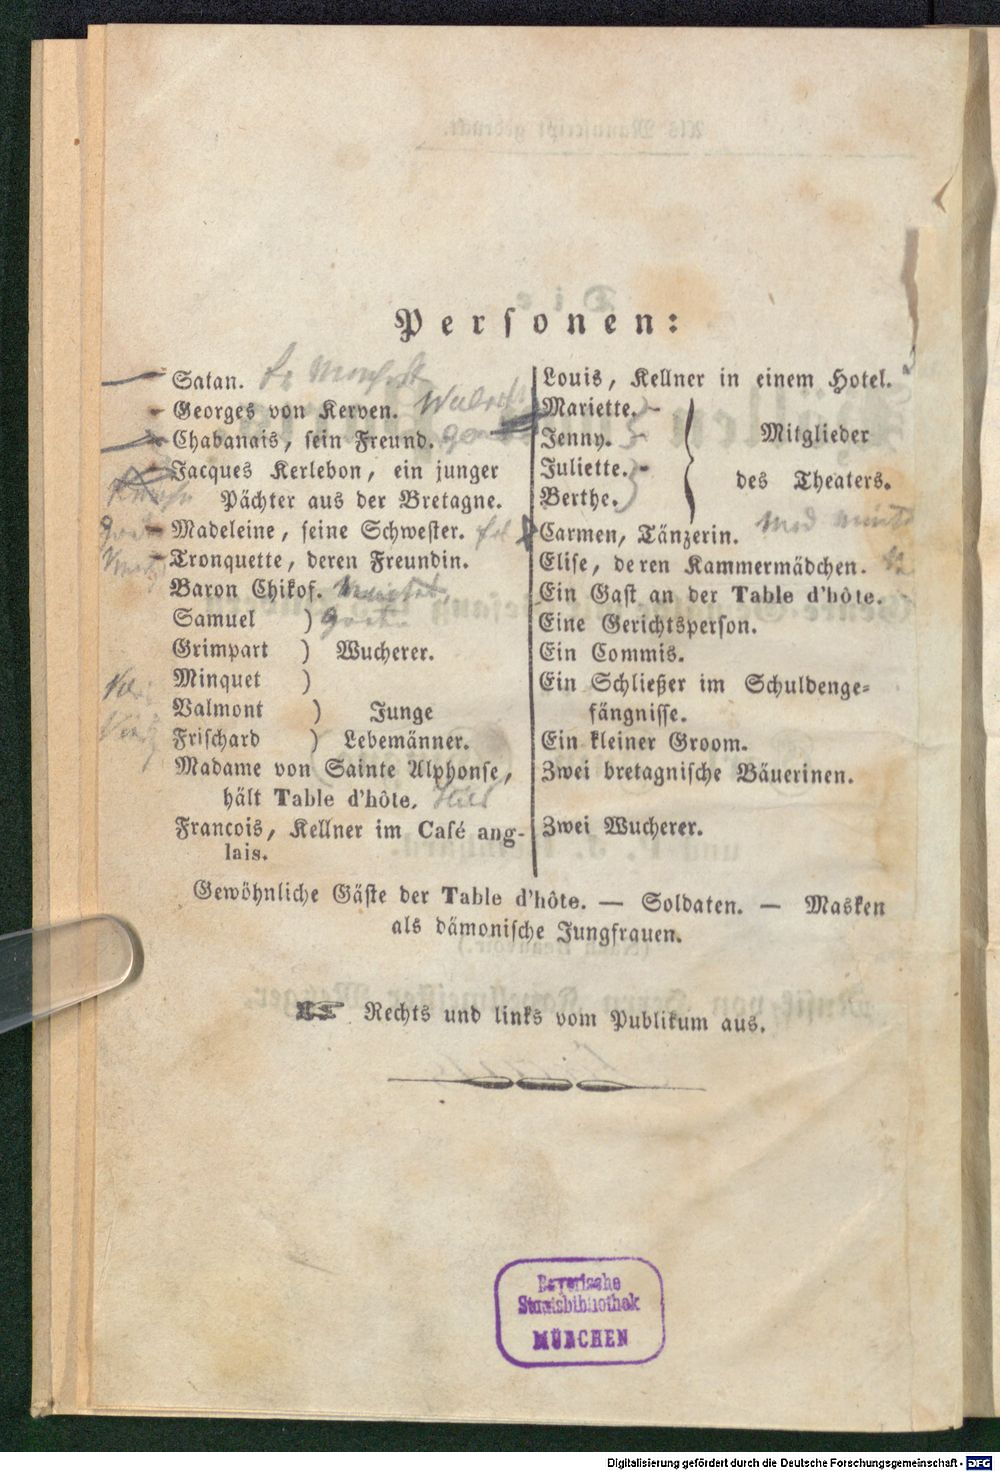 Personen:
Satan.
Georges von Kerven.
Chabanais, sein Freund.
Jacques Kerlebon, ein junger
Pächter aus der Bretagne.
Madeleine, seine Schwester.
Tronquette, deren Freundin.
Baron Chikof.
Samuel )
Grimpart ) Wucherer.
Minquet )
Valmont ) Junge
Frischard ) Lebemänner.
Madame von Sainte Alphonse,
hält Table d'hôte.
Francois, Kellner im Café ang-
lais.
Louis, Kellner in einem Hotel.
Mariette.
Jenny.
Juliette.
Berthe.
Mitglieder
des Theaters.
Carmen, Tänzerin.
Elise, deren Kammermädchen.
Ein Gast an der Table d'hôte.
Eine Gerichtsperson.
Ein Commis.
Ein Schließer im Schuldenge-
fängnisse.
Ein kleiner Groom.
Zwei bretagnische Bäuerinen.
Zwei Wucherer.
Gewöhnliche Gäste der Table d'hôte. — Soldaten. — Masken
als dämonische Jungfrauen.
☞ Rechts und links vom Publikum aus.
Bayerische
Staatsbibliothek
MÜNCHEN
Digitalisierung gefördert durch die Deutsche Forschungsgemeinschaft - DFG